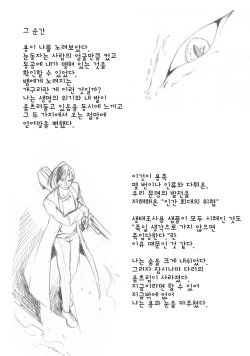 그 순간
용이 나를 노려보았다.
눈동자는 사람의 얼굴만큼 컸고
동공에 내가 맺혀 있는 것을
확인할 수 있었다.
뱀에게 노려지는
개구리란 게 이런 것일까?
나는 생명의 위기와 내 발이
움츠러들고 있음을 동시에 느끼고
그 두 가지에서 오는 절망에
얼어맞을 뻔했다.
이것이 용족
몇 번이나 인류와 다퉈온,
우리 문명의 발전을
저해해온 "인간 최대의 위협"
생태조사용 샘플이 모두 시체인 것도
"죽일 생각으로 가지 않으면
죽임당한다."라
이유 때문인 것 같다.
나는 숨을 크게 내쉬었다.
그러자 잠시나마 다리의
움츠림이 사라졌다.
지금이라면 할 수 있어
지금밖에 없어
나는 용과 눈을 마주쳤다.